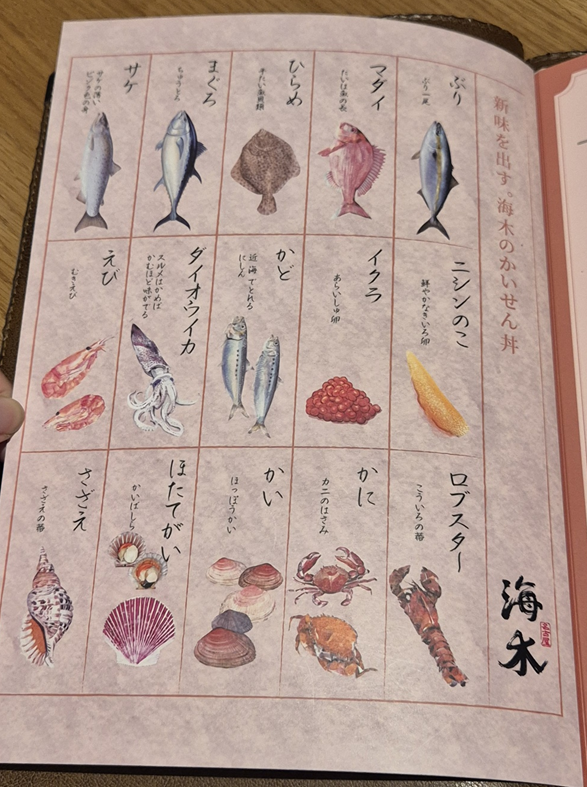 新味を出す。海木のかいせん丼
ぶり
ぶり一尾
マダイ
たいは魚の長
ひらめ
平たい魚貝類
まぐろ
ちゅうとろ
サケ
サケの薄い
ピンク色の身
ニシンのこ
鮮やかなきいろ卵
イクラ
あらいしゅ卵
かど
近海でとれる
にしん
ダイオウイカ
スルメはかめば
かむほど味がでる
えび
むきえび
ロブスター
こういろの蒂
かに
カニのはさみ
かい
ほっぽうかい
ほたてがい
かいばしら
さざえ
さざえの蒂
海木
名古屋